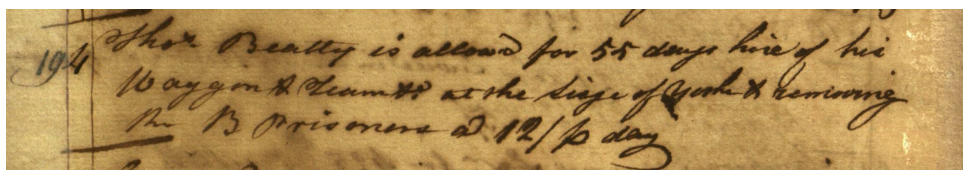 194 Thos. Beatty is allowed for 55 days hire of his
Waggon & Team &c at the Siege of York & removing
the B Prisoners @ 12/ p day